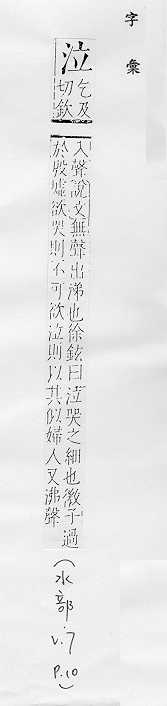 字彙
泣
乞及
切欽
入聲說文無聲出涕也徐鉉曰泣哭之細也微子過
於殷墟欲哭則不可欲泣則以其似婦人又沸聲
(水部 V.7 P.10)